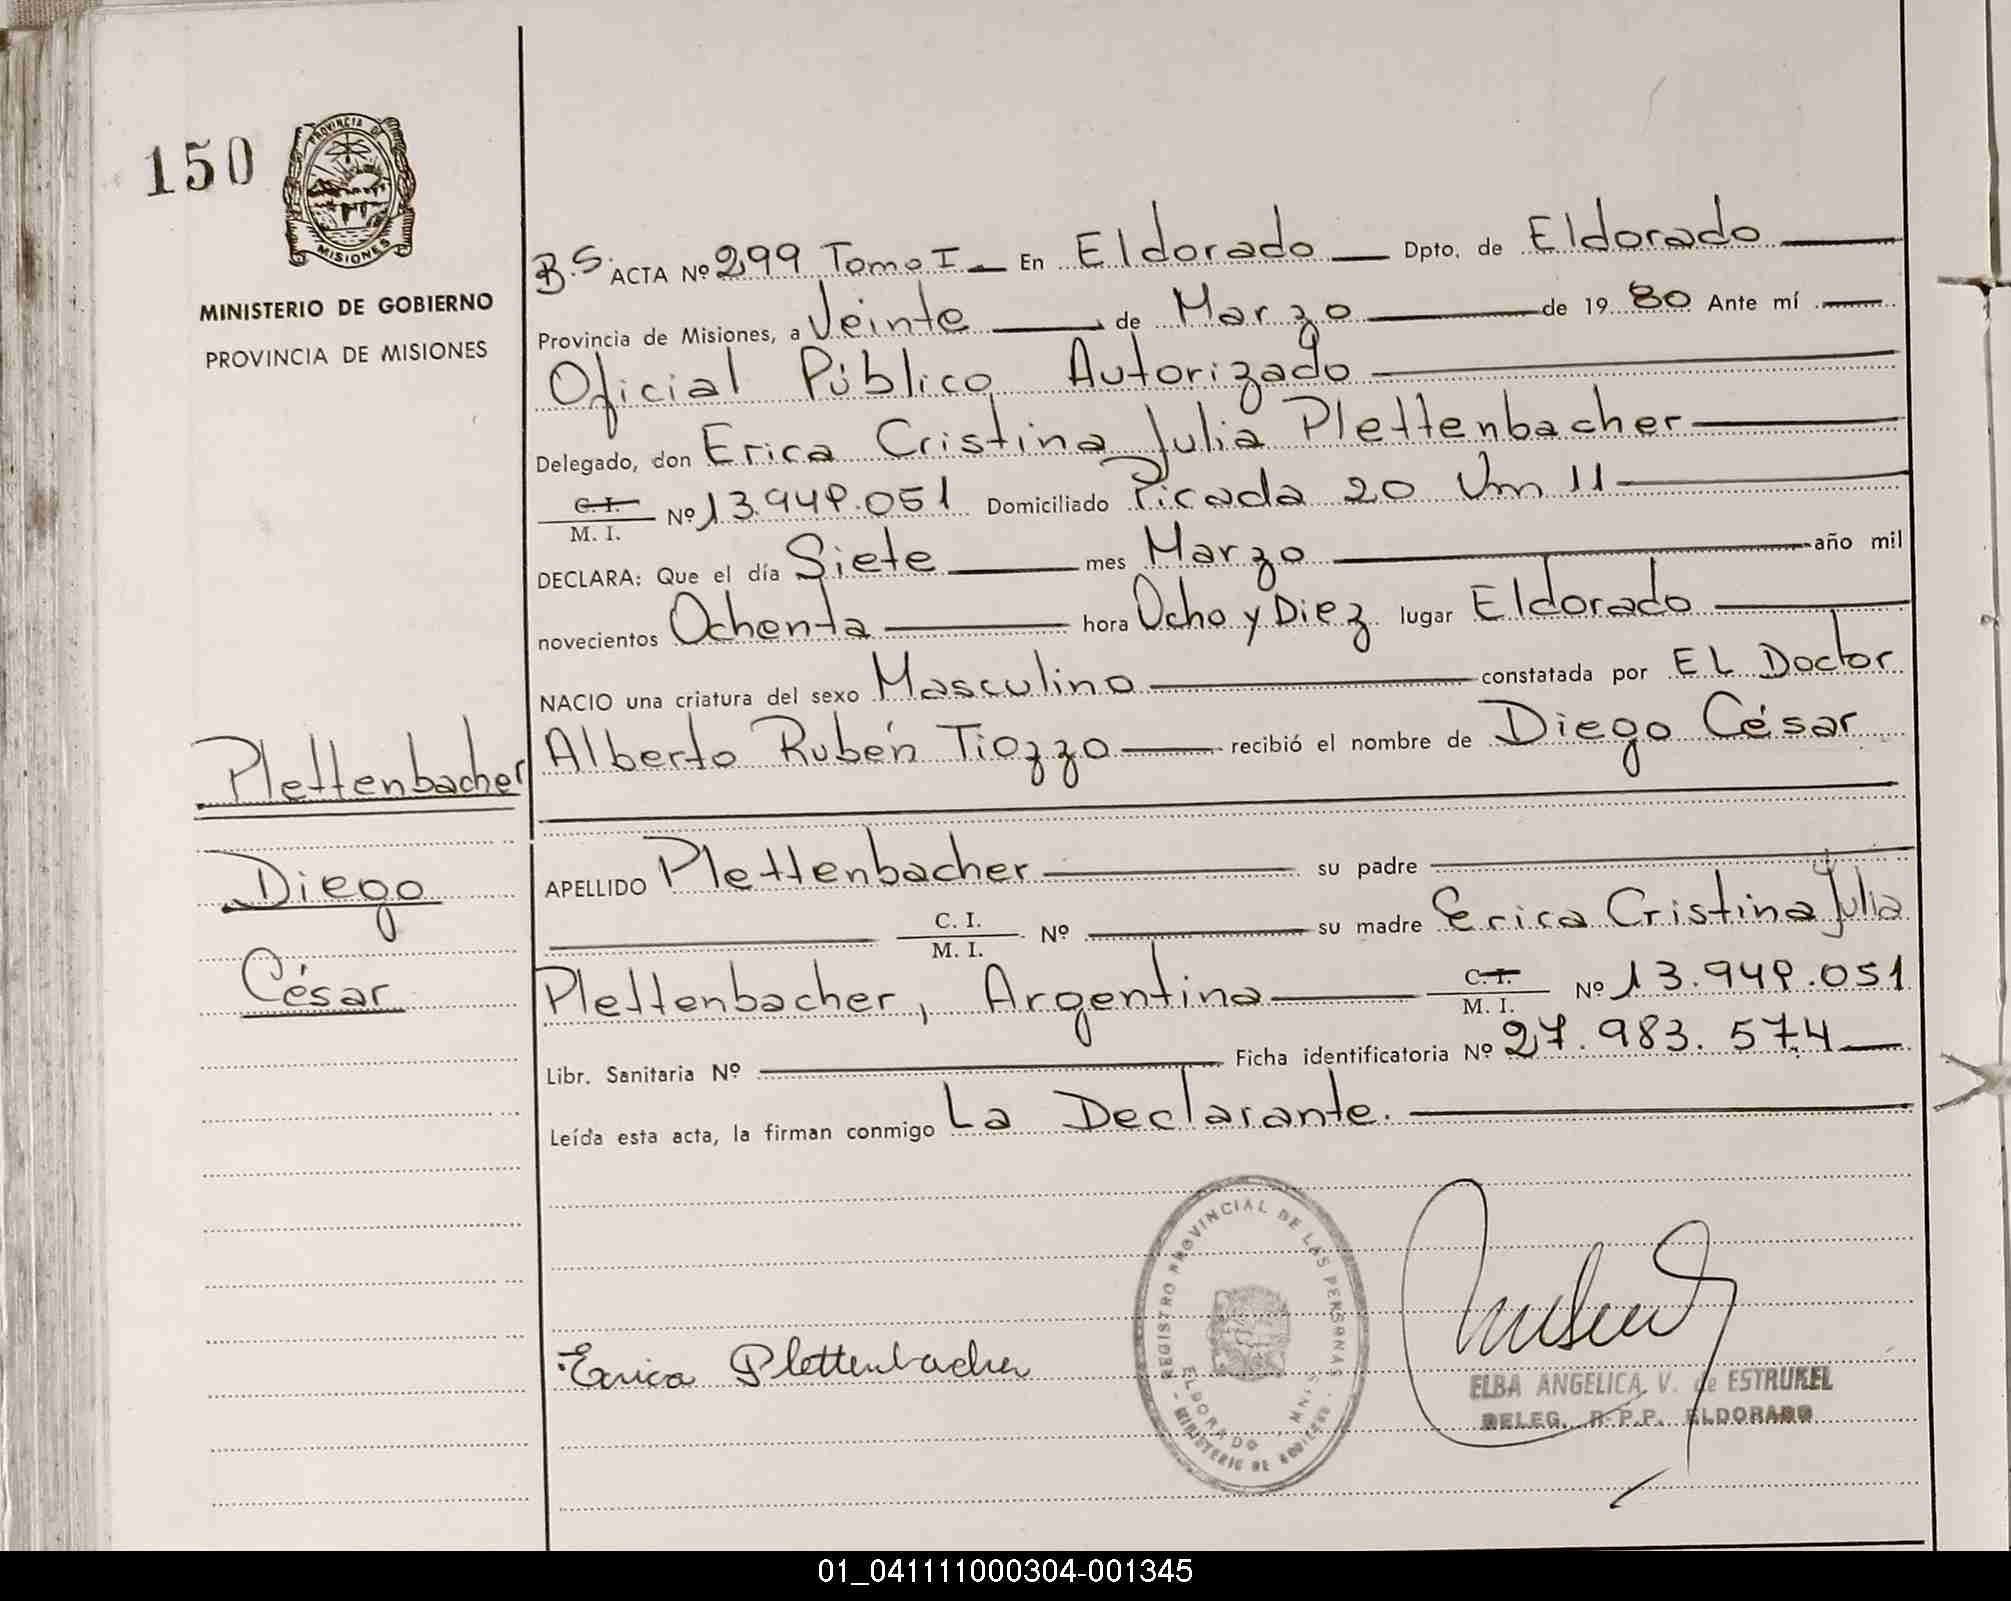 150
PROVINCIA DE
MISIONES
MINISTERIO DE GOBIERNO
PROVINCIA DE MISIONES
B.S. ACTA Nº 299 Tomo I En Eldorado Dpto. de Eldorado
Provincia de Misiones, a Veinte de Marzo de 1980 Ante mí
Oficial Público Autorizado
Delegado, don Erica Cristina Julia Plettenbacher
C. I. M. I. Nº 13.949.051 Domiciliado Picada 20 Km 11
DECLARA: Que el día Siete mes Marzo año mil
novecientos Ochenta hora Ocho y Diez lugar Eldorado
NACIO una criatura del sexo Masculino constatada por EL Doctor
Alberto Rubén Tiozzo recibió el nombre de Diego César
Plettenbacher
Diego
César
APELLIDO Plettenbacher su padre
C. I. M. I. Nº su madre Erica Cristina Julia
Plettenbacher, Argentina C. I. M. I. Nº 13.949.051
Libr. Sanitaria Nº Ficha identificatoria Nº 27.983.574
Leída esta acta, la firman conmigo La Declarante.
Erica Plettenbacher
REGISTRO PROVINCIAL DE LAS PERSONAS
ELDORADO MNES.
MINISTERIO DE GOBIERNO
ELBA ANGELICA V. de ESTRUKEL
DELEG. R.P.P. ELDORADO
01_041111000304-001345